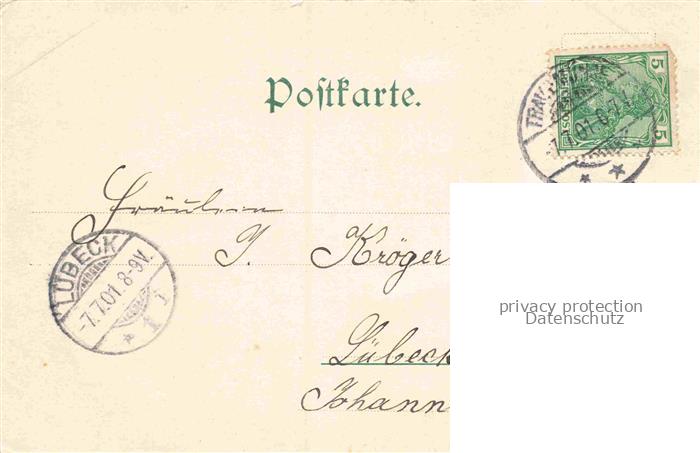 Postkarte.
5 5
-7.7.01.
Fräulein
J. Kröger
LÜBECK
-7.7.01.8-9V.
* 1 j
privacy protection
Datenschutz
Lübeck
Johann